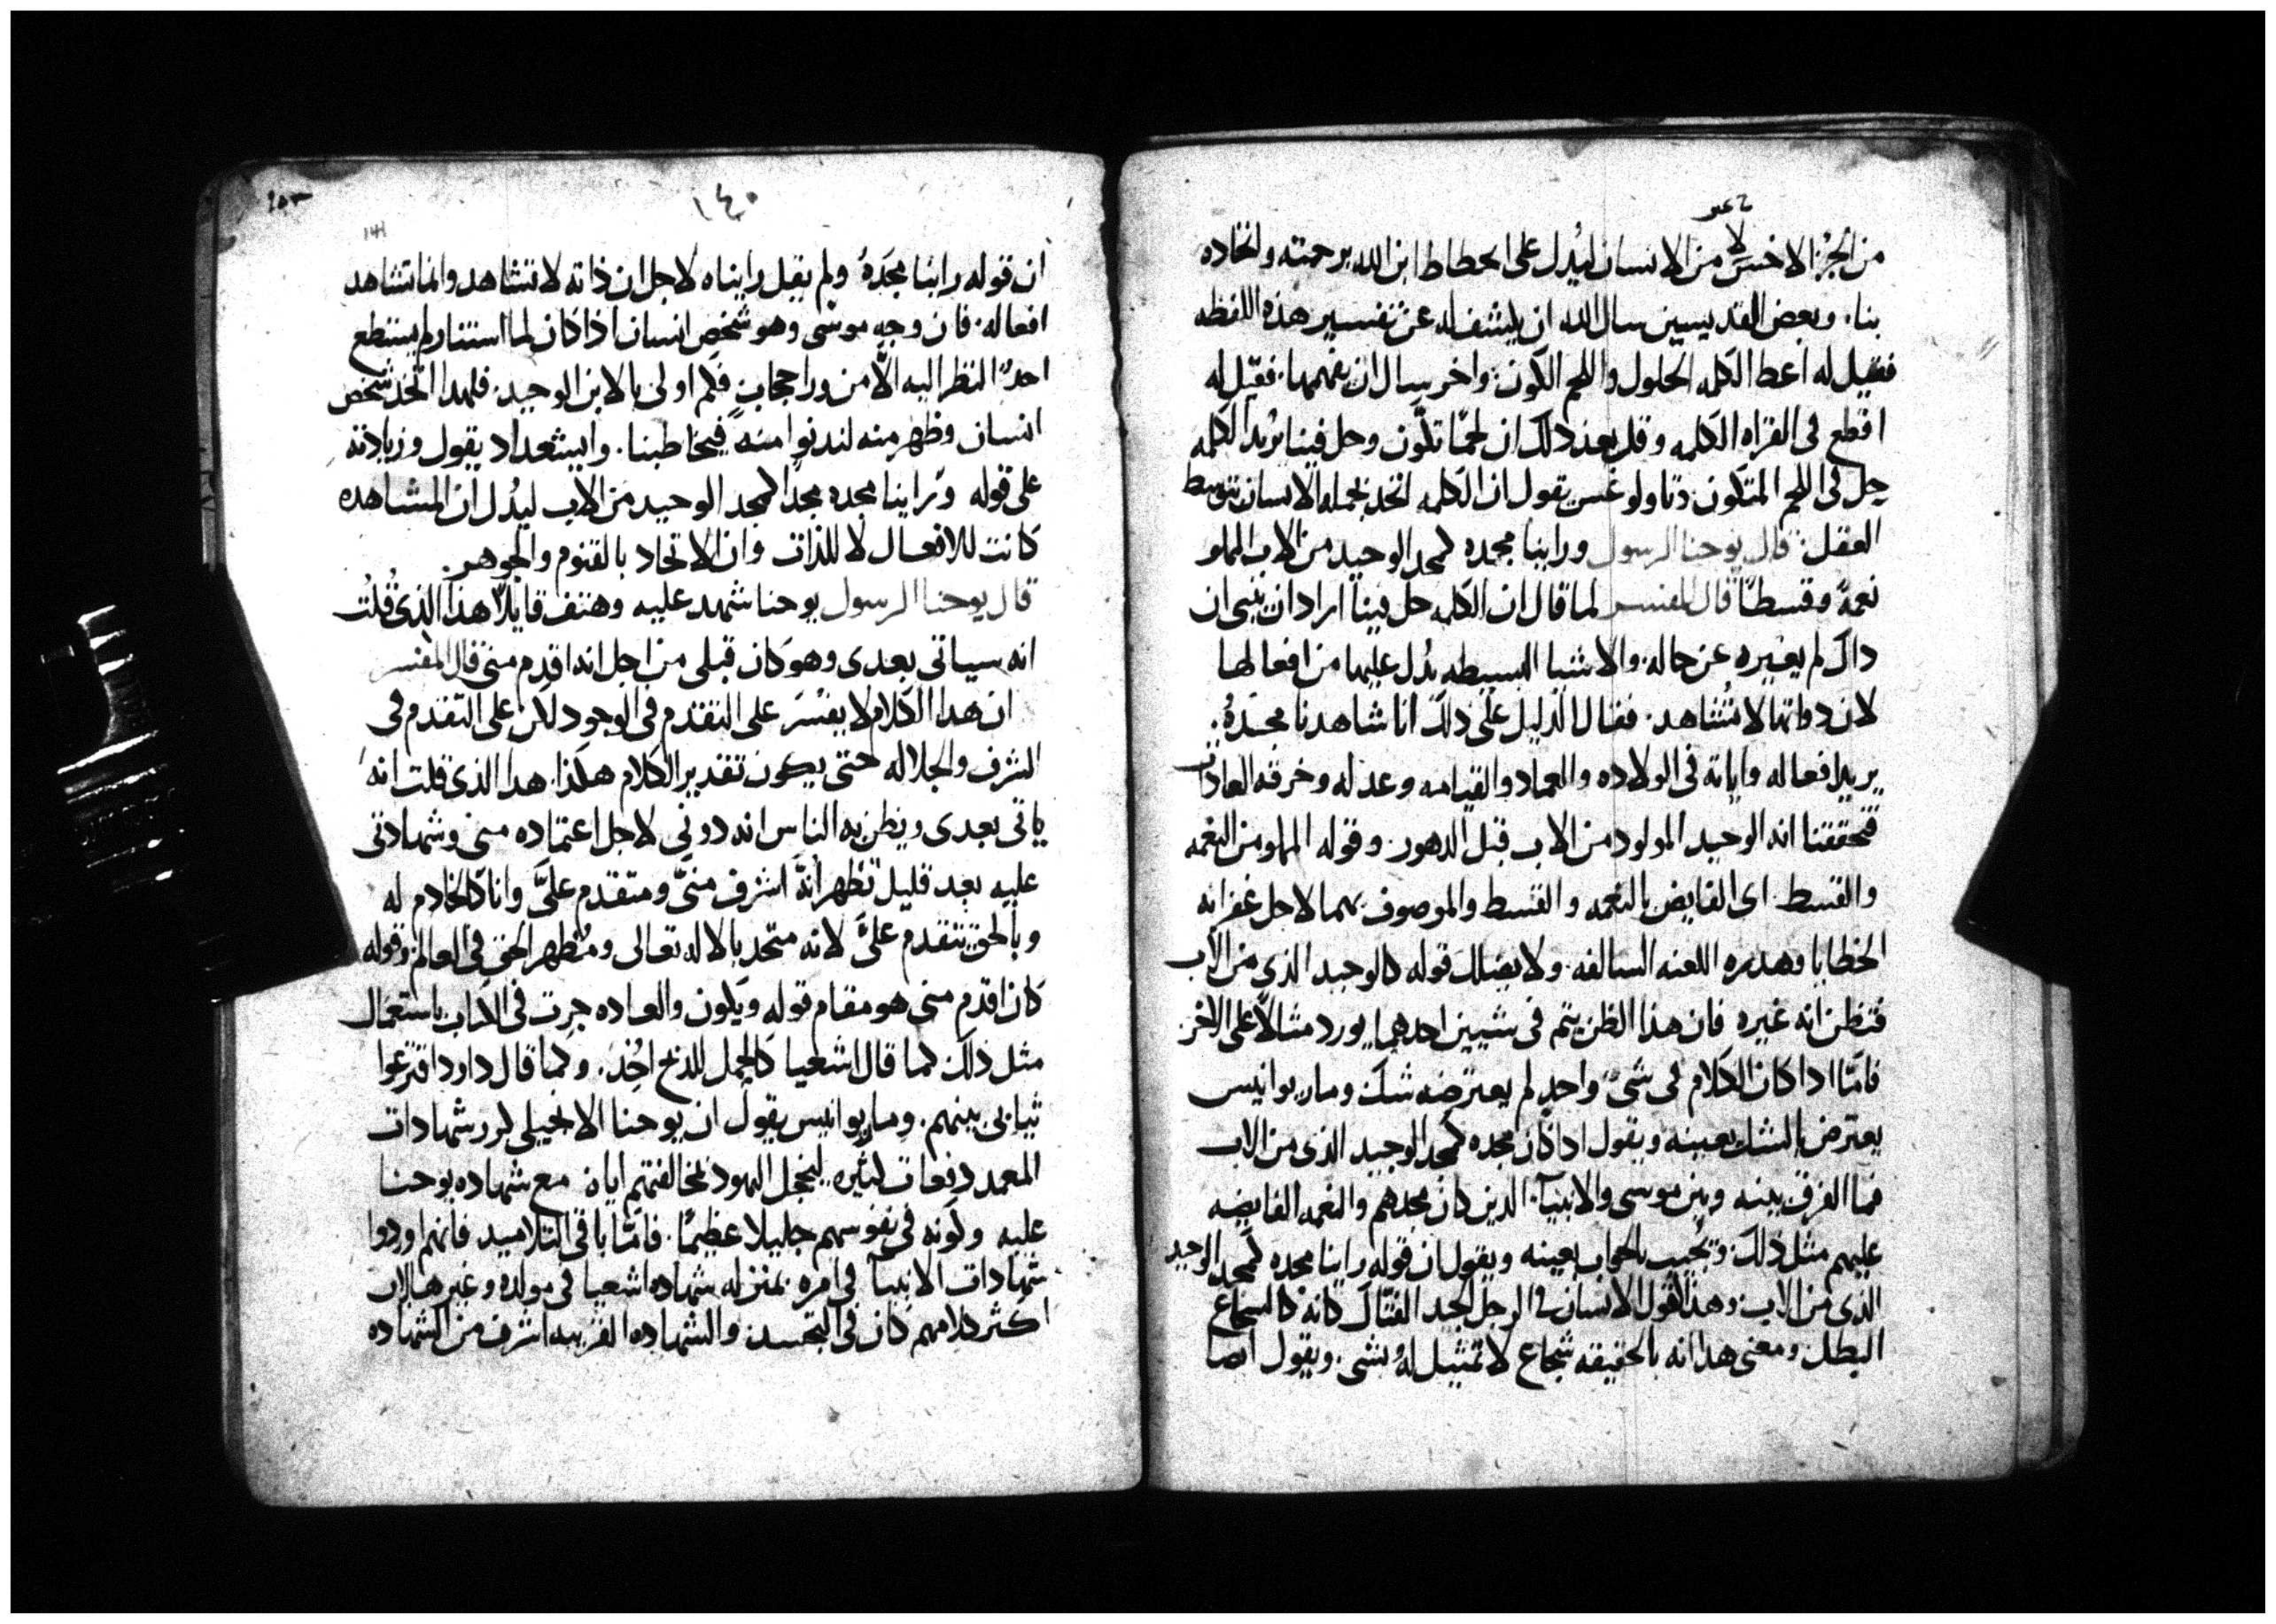 من الجزء الاخس لا من الانسان ليدل على انحطاط ابن الله برحمته واتخاده
بنا. وبعض القديسين سال الله ان يكشف له عن تفسير هذه اللفظه
فقيل له اعط الكلمه الحلول واللحم الكون. واخر سال ان يفهمها. فقيل له
اقطع في القراه الكلمه وقل بعد ذلك ان لحمًا تكّون وحل فينا يريد الكلمه
حل في اللحم المتكون. وتاولوغس يقول ان الكلمه اتحد بجملة الانسان بتوسط
العقل. قال يوحنا الرسول وراينا مجده كمجد الوحيد من الاب المملو
نعمةً وقسطًا قال المفسر لما قال ان الكلمه حل فينا اراد ان يبين ان
داك لم يغيره عن حاله. والاشيا البسيطه يدل عليها من افعالها
لان دواتها لا تُشاهد. فقال الدليل على ذلك انا شاهدنا مجدهُ.
يريد افعاله واياته في الولاده والعماد والقيامه وعدله وخرقه العادات
فتحققنا انه الوحيد المولود من الاب قبل الدهور. وقوله المملو من النعمه
والقسط. اى الفايض بالنعمه والقسط والموصوف بهما لاجل غفرانه
الخطايا وهدمه اللعنه السالفه. ولا يضلك قوله كالوحيد الذى من الاب
فتظن انه غيره فان هذا الظن يتم في شيين احدهما يورد مثالًا على الاخر
فامّا ادا كان الكلام في شىً واحدٍ لم يعترضه شك ومار يوانيس
يعترض بالشك بعينه ويقول ادا كان مجده كمجد الوحيد الذى من الاب
فما الفرق بينه وبين موسى والانبيآ. الدين كان مجدهم والنعمه الفايضه
عليهم مثل ذلك ويجيب بالجواب بعينه ويقول ان قوله راينا مجده كمجد الوحيد
الذى من الاب. وهذا كقول الانسان في الرجل الجيد القتال كانه كالشجاع
البطل. ومعنى هذا انه بالحقيقه شجاع لا تمثيل لهُ بشى. ويقول ايضا
١٤٠
ان قوله راينا مجدَهُ ولم يقل رايناه لاجل ان ذاته لا تشاهد وانما تشاهد
افعاله. فان وجه موسى وهو شخص انسان اذا كان لما استنار لم يستطع
احدٌ النظر اليه الّا من ورا حجابٍ فكم اولى بالابن الوحيد. فلهدا اتخد شخص
انسان وظهر منه لندنوا منه فيخاطبنا. وايشعداد يقول وزيادته
على قوله وراينا مجده مجدًا كمجد الوحيد من الاب ليدُل ان المشاهده
كانت للافعال لا للذات وان الاتحاد بالقنوم والجوهر.
قال يوحنا الرسول يوحنا شهد عليه وهتف قايلًا هدا الذى قُلتُ
انه سياتى بعدى وهو كان قبلى من اجل انه اقدم منى قال المفسر
ان هدا الكلام لا يفسَر على التقدم في الوجود لكن على التقدم في
الشرف والجلاله حتى يكون تقدير الكلام هكذا. هدا الذى قلت انه
ياتى بعدى ويظن به الناس انه دونى لاجل اعتماده منى وشهادتى
عليه بعد قليل تظهر أنهُ اشرف منىّ ومتقدم علىَّ وانا كالخادم له
وبالحق يتقدم علىَّ لانه متحد بالاله تعالى ومُظهر الحق في العالم. وقوله
كان اقدم منى هو مقام قوله ويكون والعاده جرت في الكتاب باستعمال
مثل ذلك كما قال اشعيا كالحمل للذبح اخِذ. وكما قال داود اقترعوا
ثيابى بينهم. ومار يوانيس يقول ان يوحنا الانجيلى كرر شهادات
المعمد دفعات كثيره ليخجل اليهود بمخالفتهم اياه مع شهاده يوحنا
عليه وكونه في نفوسهم جليلا عظيمًا. فامّا باقى التلاميد فانهم اوردوا
شهادات الانبيآ في امره بمنزله شهاده اشعيا في مولده وغيرها لان
اكثر كلامهم كان في التجسد. والشهاده القريبه اشرف من الشهاده